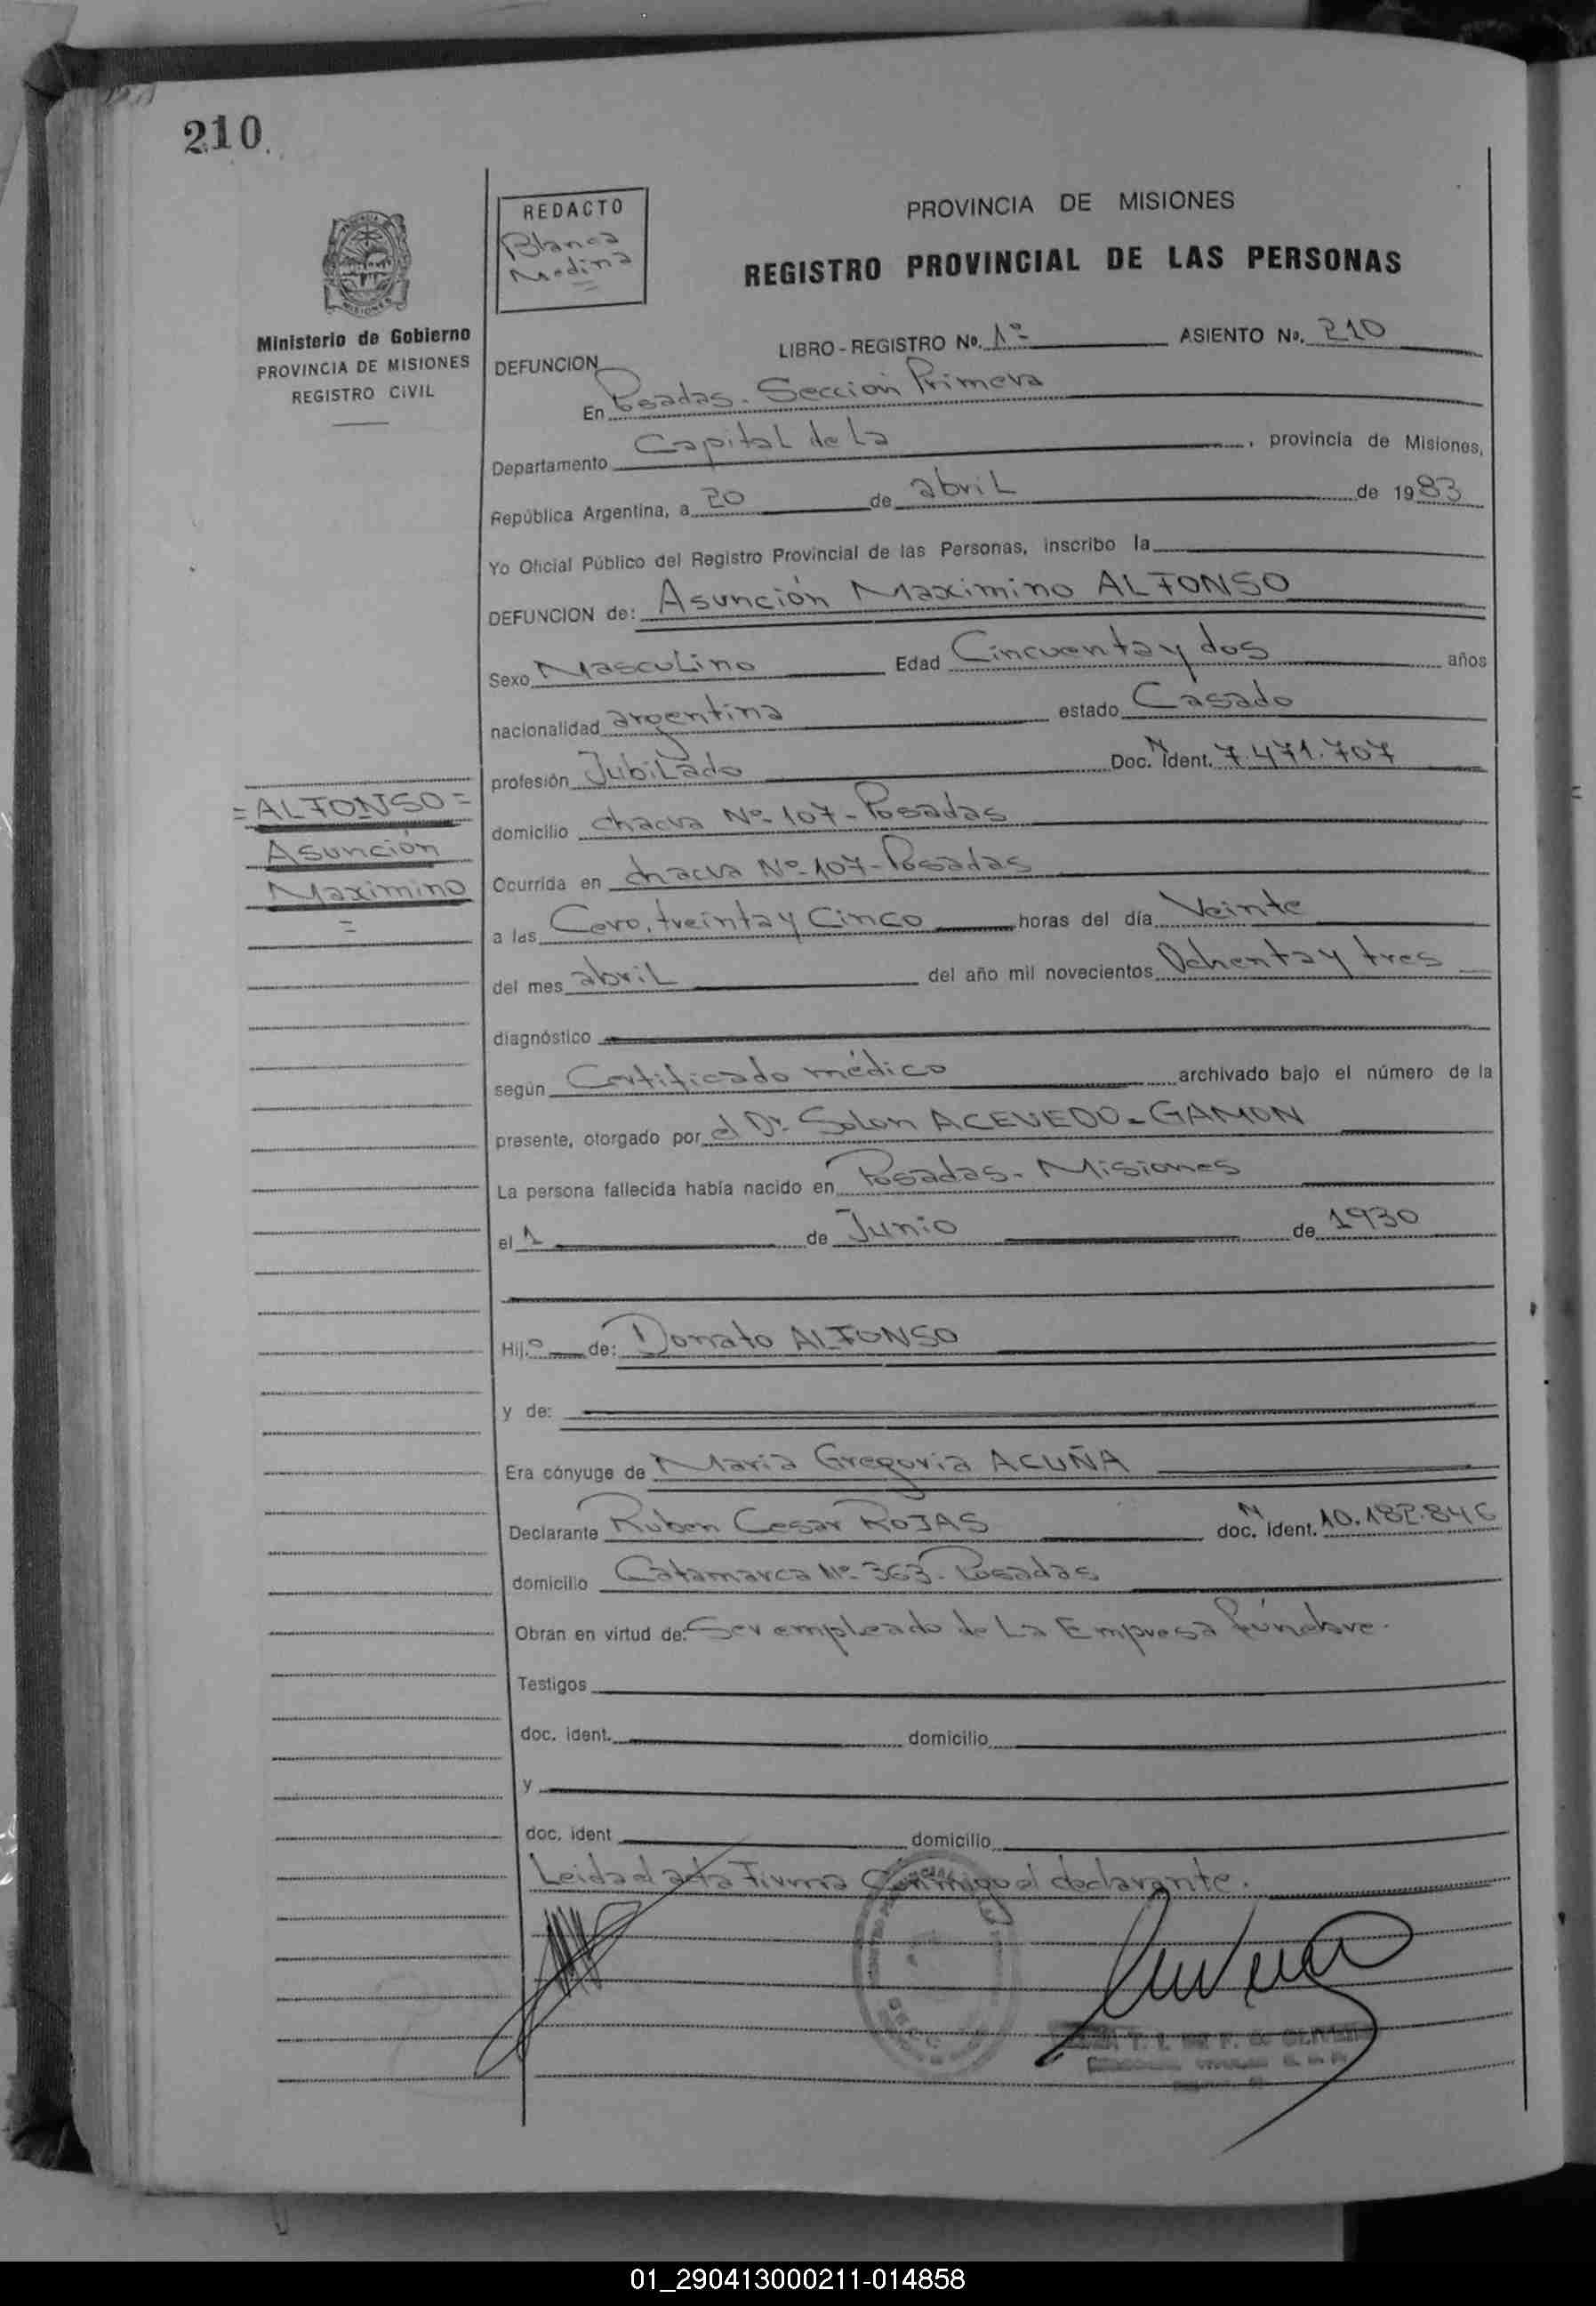 210
REDACTO
Blanca
Medina
PROVINCIA DE MISIONES
REGISTRO PROVINCIAL DE LAS PERSONAS
Ministerio de Gobierno
PROVINCIA DE MISIONES
REGISTRO CIVIL
LIBRO - REGISTRO No. 1º ASIENTO No. 210
DEFUNCION
En Posadas. Sección Primera
Departamento Capital de la , provincia de Misiones,
República Argentina, a 20 de abril de 1983
Yo Oficial Público del Registro Provincial de las Personas, inscribo la
DEFUNCION de: Asunción Maximino ALFONSO
Sexo Masculino Edad Cincuenta y dos años
nacionalidad argentina estado Casado
profesión Jubilado Doc. N Ident. 7.471.707
=ALFONSO=
Asunción
Maximino
=
domicilio chacra Nº 107 - Posadas
Ocurrida en chacra Nº 107 - Posadas
a las Cero, treinta y Cinco horas del día Veinte
del mes abril del año mil novecientos Ochenta y tres
diagnóstico
según Certificado médico archivado bajo el número de la
presente, otorgado por el Dr. Solon ACEVEDO - GAMON
La persona fallecida había nacido en Posadas - Misiones
el 1 de Junio de 1930
Hijo de: Donato ALFONSO
y de:
Era cónyuge de Maria Gregoria ACUÑA
Declarante Ruben Cesar ROJAS doc. N Ident. 10.182.846
domicilio Catamarca Nº 363 - Posadas
Obran en virtud de: Ser empleado de La Empresa fúnebre.
Testigos
doc. ident. domicilio
y
doc. ident domicilio
Leida el acta Firma Conmigo el declarante.
01_290413000211-014858